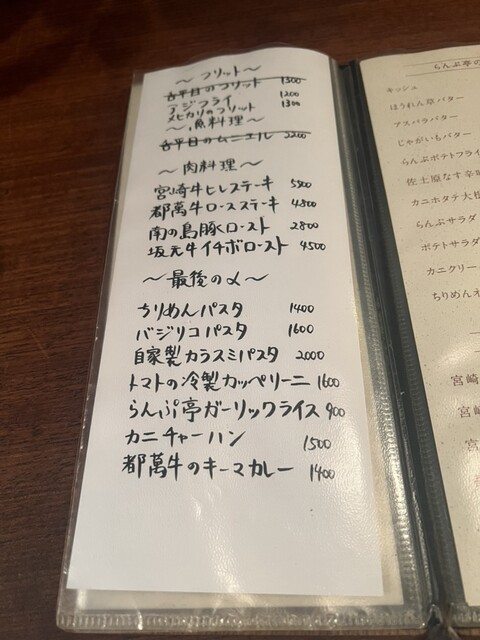 〜 フリット 〜
舌平目のフリット 1300
アジフライ 1200
メヒカリのフリット 1300
〜 魚料理 〜
舌平目のムニエル 2200
〜 肉料理 〜
宮崎牛ヒレステーキ 5500
都萬牛ロースステーキ 4800
南の島豚ロースト 2800
坂元牛イチボロースト 4500
〜 最後の〆 〜
ちりめんパスタ 1400
バジリコパスタ 1600
自家製カラスミパスタ 2,000
トマトの冷製カッペリーニ 1600
らんぷ亭ガーリックライス 900
カニチャーハン 1500
都萬牛のキーマカレー 1400
らんぷ亭の
キッシュ
ほうれん草バター
アスパラバター
じゃがいもバター
らんぷポテトフライ
佐土原なす辛味
カニホタテ大根
らんぷサラダ
ポテトサラダ
カニクリー
ちりめんえ
宮崎
宮崎
宮